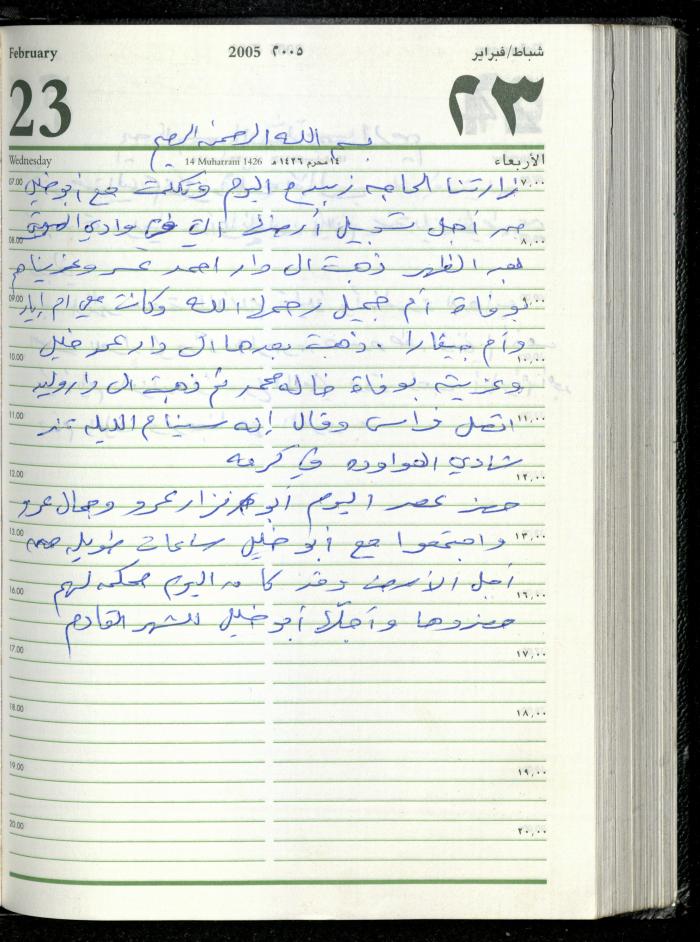 February 2005 ٢٠٠٥ شباط/فبراير
23 ٢٣
بسم الله الرحمن الرحيم
Wednesday 14 Muharram 1426 ١٤ محرم ١٤٢٦ هـ الأربعاء
07.00 ٧,٠٠
زارتنا الحاجه زبيدة اليوم وتكلمت مع أبو خليل
من أجل تسجيل أرضنا التي في وادي
08.00 ٨,٠٠
بعد الظهر ذهبت الى دار احمد عمر وعزيناهم
09.00 ٩,٠٠
بوفاة أم جميل رحمها الله وكانت معي ام اياد
وأم جيفارا. ذهبت بعدها الى دار عمر خليل
10.00 ١٠,٠٠
وعزيته بوفاة خاله محمد ثم ذهبت الى دار وليد
11.00 ١١,٠٠
اتصل فراس وقال إنه سينام الليله عند
شادي الهواوده في كرمه
12.00 ١٢,٠٠
حضر عصر اليوم أبو نزار عمرو وجمال عمرو
13.00 ١٣,٠٠
واجتمعوا مع أبو خليل ساعات طويله من
أجل الأرض وقد كان اليوم محكمه لهم
16.00 ١٦,٠٠
حضروها وأجلّها أبو خليل للشهر القادم
17.00 ١٧,٠٠
18.00 ١٨,٠٠
19.00 ١٩,٠٠
20.00 ٢٠,٠٠